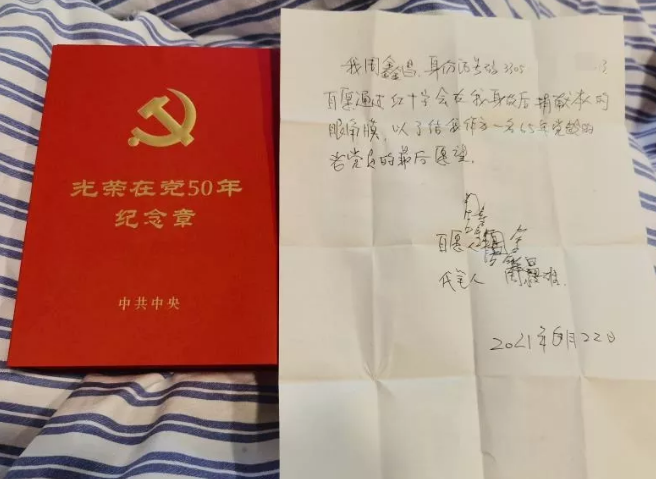 光荣在党50年
纪念章
中共中央
我周鑫昌，身份证号码3305
自愿通过红十字会在我身故后捐献本人的
眼角膜，以了结我作为一名65年党龄的
老党员的最后愿望。
自愿人
代笔人 周
2021年6月22日